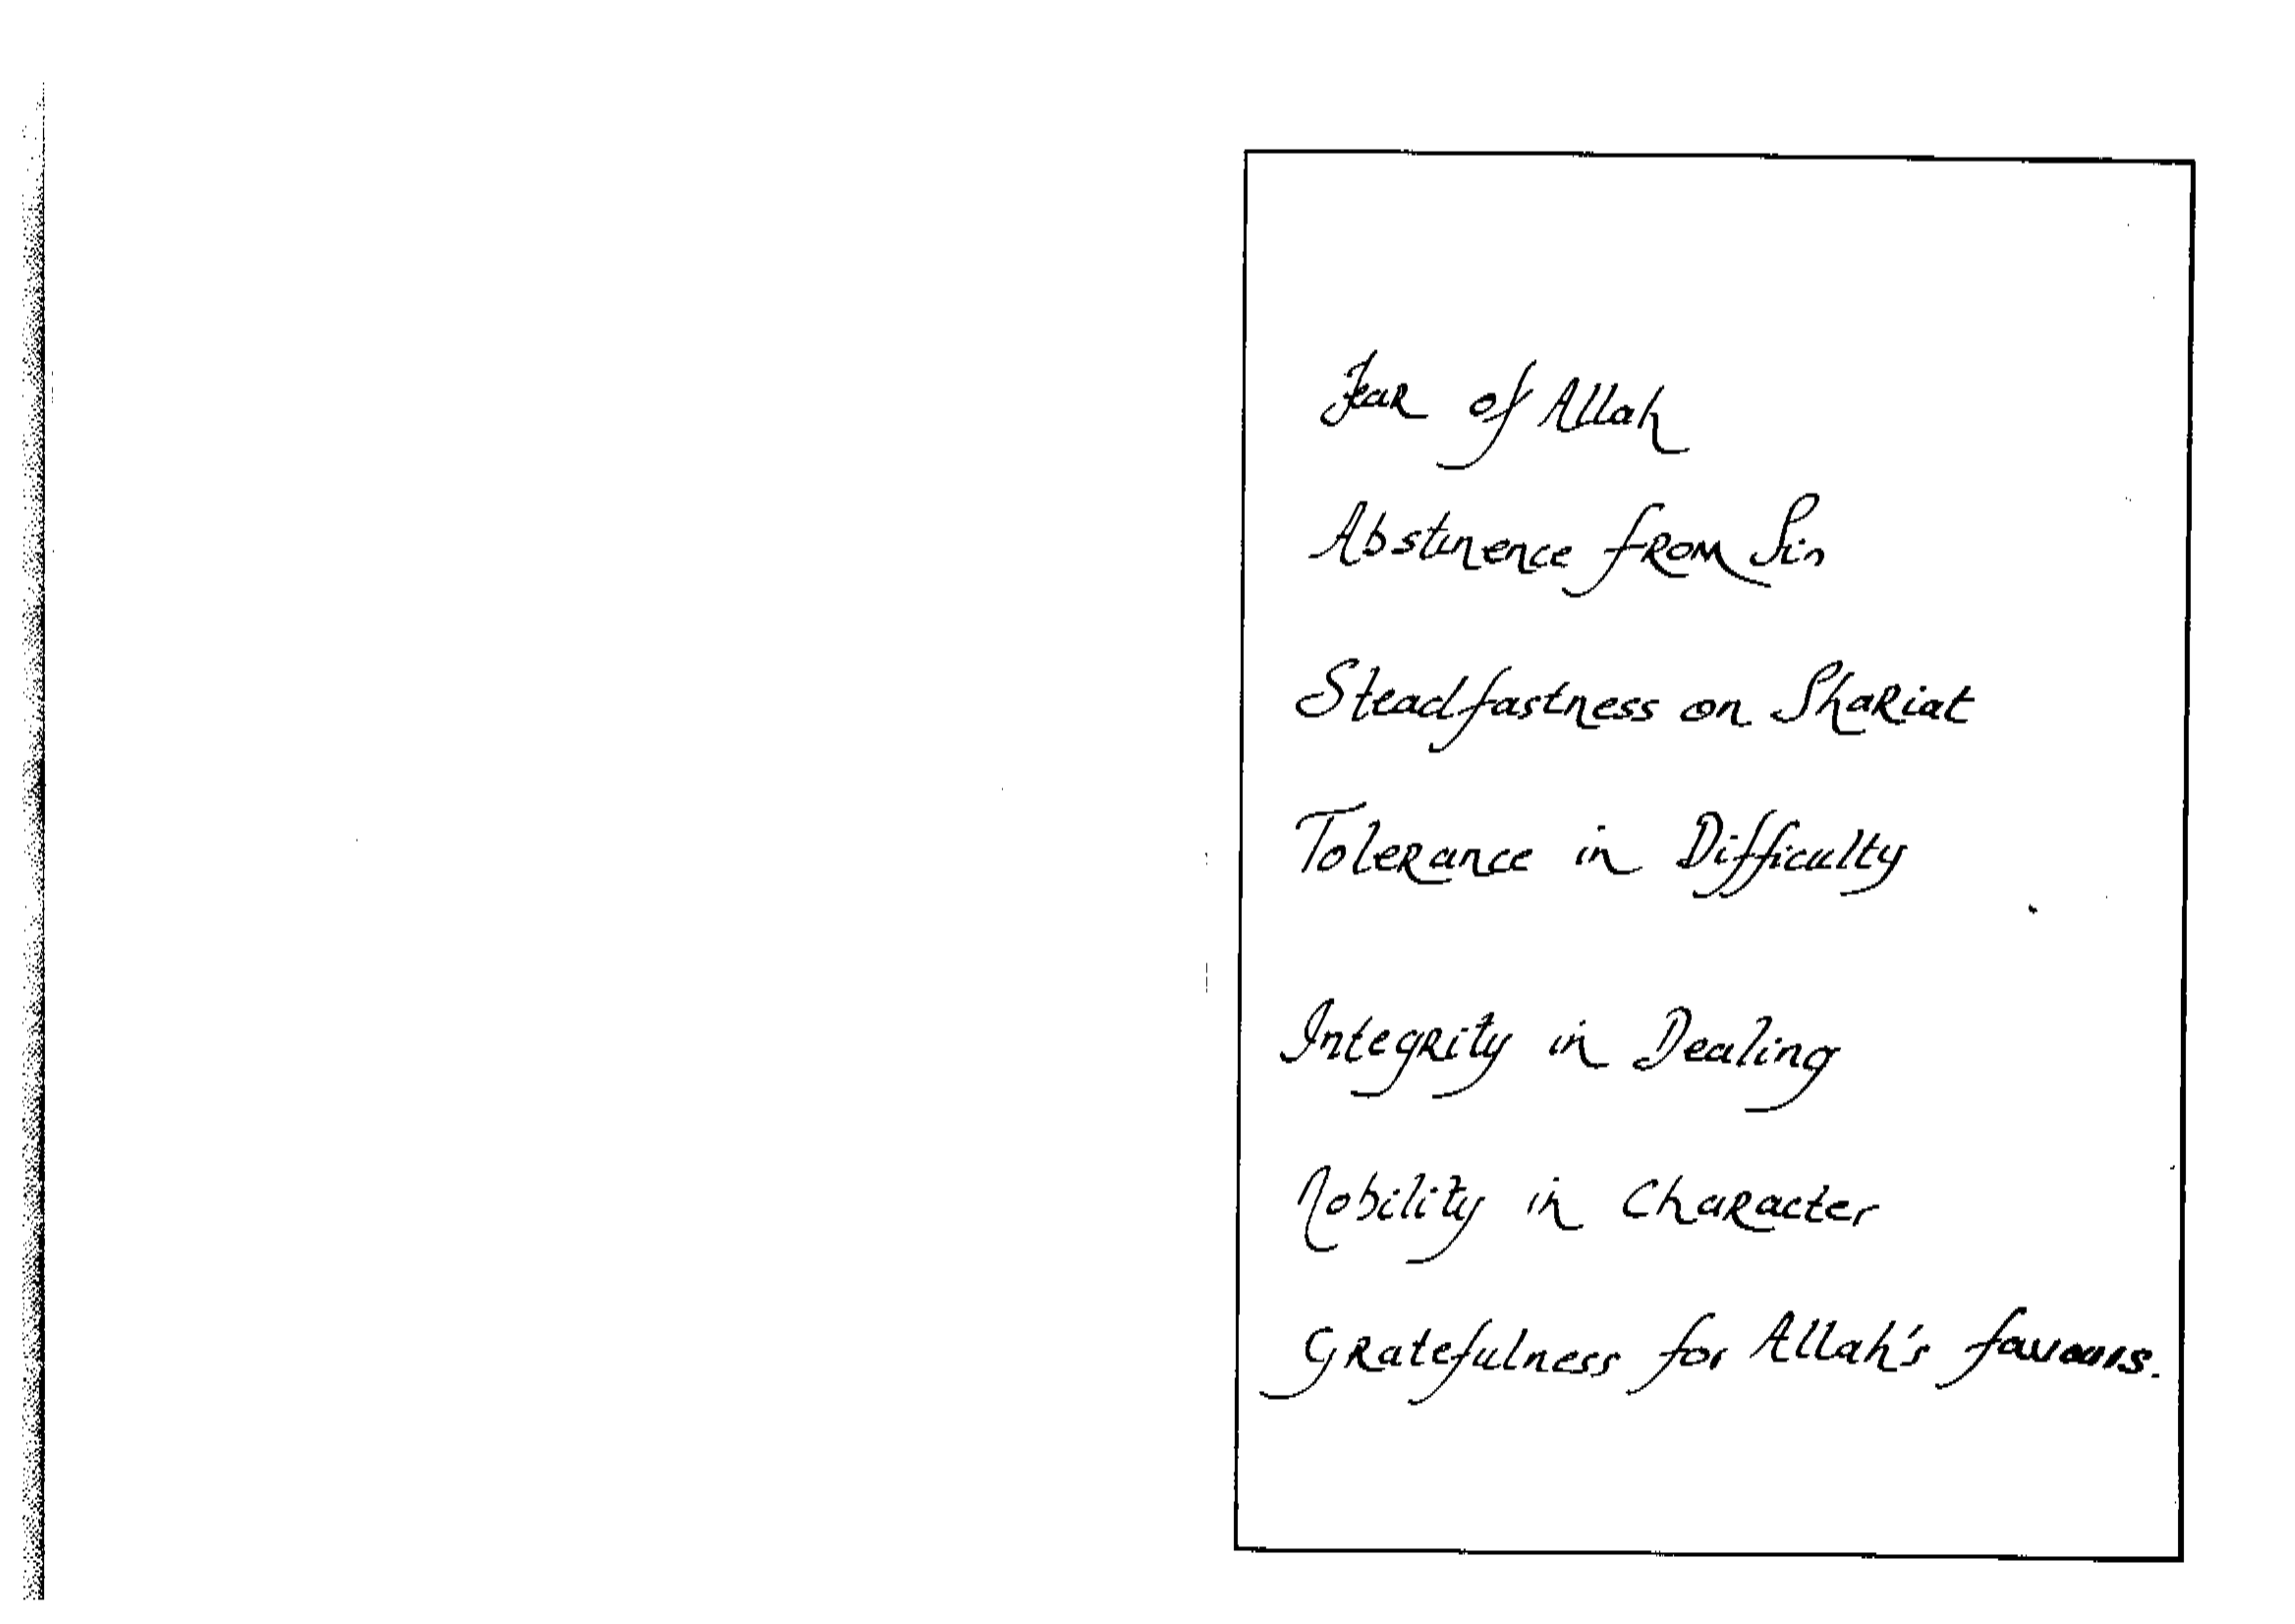 Fear of Allah
Abstinence from Sin
Steadfastness on Shariat
Tolerance in Difficulty
Integrity in Dealing
Nobility in Character
Gratefulness for Allah's favours.